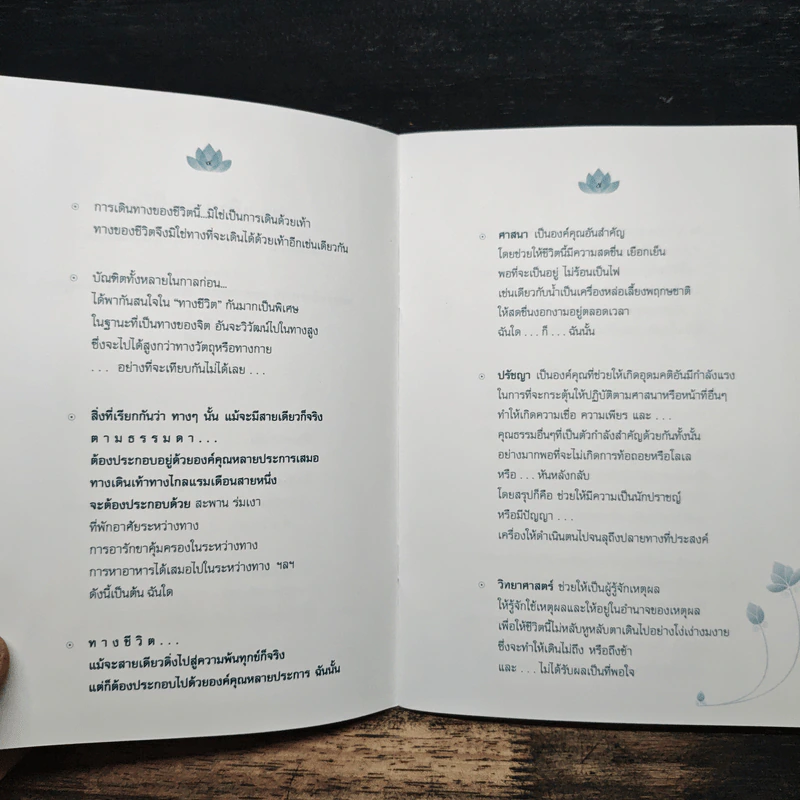 การเดินทางของชีวิตนี้...มิใช่เป็นการเดินด้วยเท้า
ทางของชีวิตจึงมิใช่ทางที่จะเดินได้ด้วยเท้าอีกเช่นเดียวกัน
บัณฑิตทั้งหลายในกาลก่อน...
ได้พากันสนใจใน “ทางชีวิต” กันมากเป็นพิเศษ
ในฐานะที่เป็นทางของจิต อันจะวิวัฒน์ไปในทางสูง
ซึ่งจะไปได้สูงกว่าทางวัตถุหรือทางกาย
. . . อย่างที่จะเทียบกันไม่ได้เลย . . .
สิ่งที่เรียกกันว่า ทางๆ นั้น แม้จะมีสายเดียวก็จริง
ต า ม ธ ร ร ม ด า . . .
ต้องประกอบอยู่ด้วยองค์คุณหลายประการเสมอ
ทางเดินเท้าทางไกลแรมเดือนสายหนึ่ง
จะต้องประกอบด้วย สะพาน ร่มเงา
ที่พักอาศัยระหว่างทาง
การอารักขาคุ้มครองในระหว่างทาง
การหาอาหารได้เสมอไปในระหว่างทาง ฯลฯ
ดังนี้เป็นต้น ฉันใด
ท า ง ชี วิ ต . . .
แม้จะสายเดียวดิ่งไปสู่ความพ้นทุกข์ก็จริง
แต่ก็ต้องประกอบไปด้วยองค์คุณหลายประการ ฉันนั้น
ศาสนา เป็นองค์คุณอันสำคัญ
โดยช่วยให้ชีวิตนี้มีความสดชื่น เยือกเย็น
พอที่จะเป็นอยู่ ไม่ร้อนเป็นไฟ
เช่นเดียวกับน้ำเป็นเครื่องหล่อเลี้ยงพฤกษชาติ
ให้สดชื่นงอกงามอยู่ตลอดเวลา
ฉันใด . . . ก็ . . . ฉันนั้น
ปรัชญา เป็นองค์คุณที่ช่วยให้เกิดอุดมคติอันมีกำลังแรง
ในการที่จะกระตุ้นให้ปฏิบัติตามศาสนาหรือหน้าที่อื่นๆ
ทำให้เกิดความเชื่อ ความเพียร และ . . .
คุณธรรมอื่นๆที่เป็นตัวกำลังสำคัญด้วยกันทั้งนั้น
อย่างมากพอที่จะไม่เกิดการท้อถอยหรือโลเล
หรือ . . . หันหลังกลับ
โดยสรุปก็คือ ช่วยให้มีความเป็นนักปราชญ์
หรือมีปัญญา . . .
เครื่องให้ดำเนินตนไปจนลุถึงปลายทางที่ประสงค์
วิทยาศาสตร์ ช่วยให้เป็นผู้รู้จักเหตุผล
ให้รู้จักใช้เหตุผลและให้อยู่ในอำนาจของเหตุผล
เพื่อให้ชีวิตนี้ไม่หลับหูหลับตาเดินไปอย่างโง่เง่างมงาย
ซึ่งจะทำให้เดินไม่ถึง หรือถึงช้า
และ . . . ไม่ได้รับผลเป็นที่พอใจ